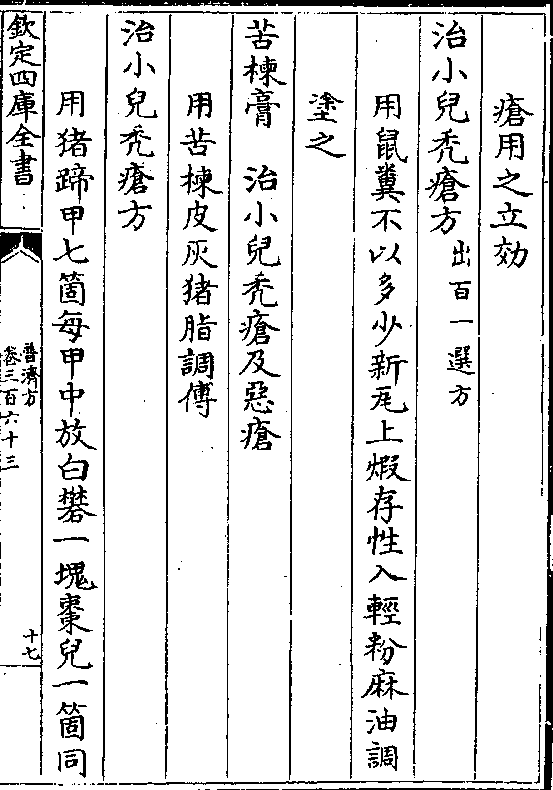 瘡用之立効
治小兒禿瘡方 出百一選方
用鼠糞不以多少新瓦上煆存性入輕粉麻油調
塗之
苦楝膏 治小兒禿瘡及惡瘡
用苦楝皮灰猪脂調傅
治小兒禿瘡方
用猪蹄甲七箇每甲中放白礬一塊棗兒一箇同
欽定四庫全書
普濟方
卷三百六十三
十七